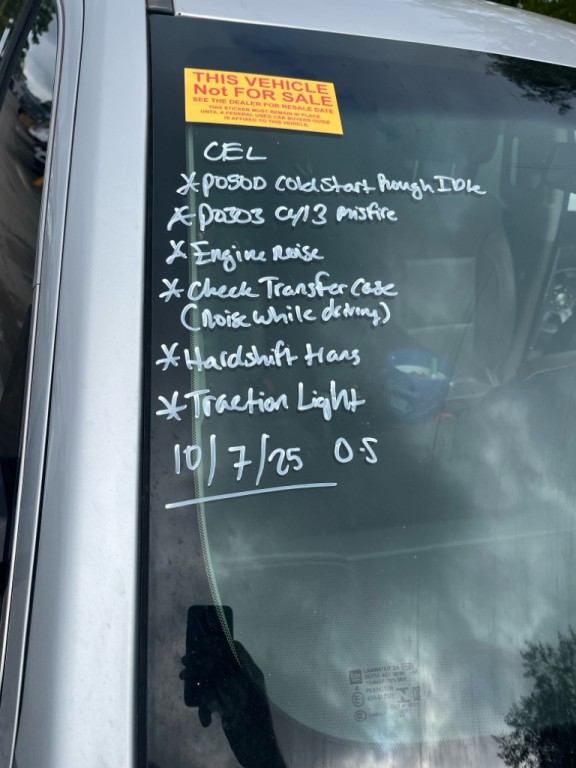 THIS VEHICLE
Not FOR SALE
SEE THE DEALER FOR RESALE DATE
THIS STICKER MUST REMAIN IN PLACE
UNTIL A FEDERAL USED CAR BUYERS GUIDE
IS AFFIXED TO THIS VEHICLE.
CEL
* P050D Cold Start Rough Idle
* P0303 Cyl 3 misfire
* Engine noise
* Check Transfer case
(Noise while driving)
* Hardshift trans
* Traction Light
10/7/25 O.S